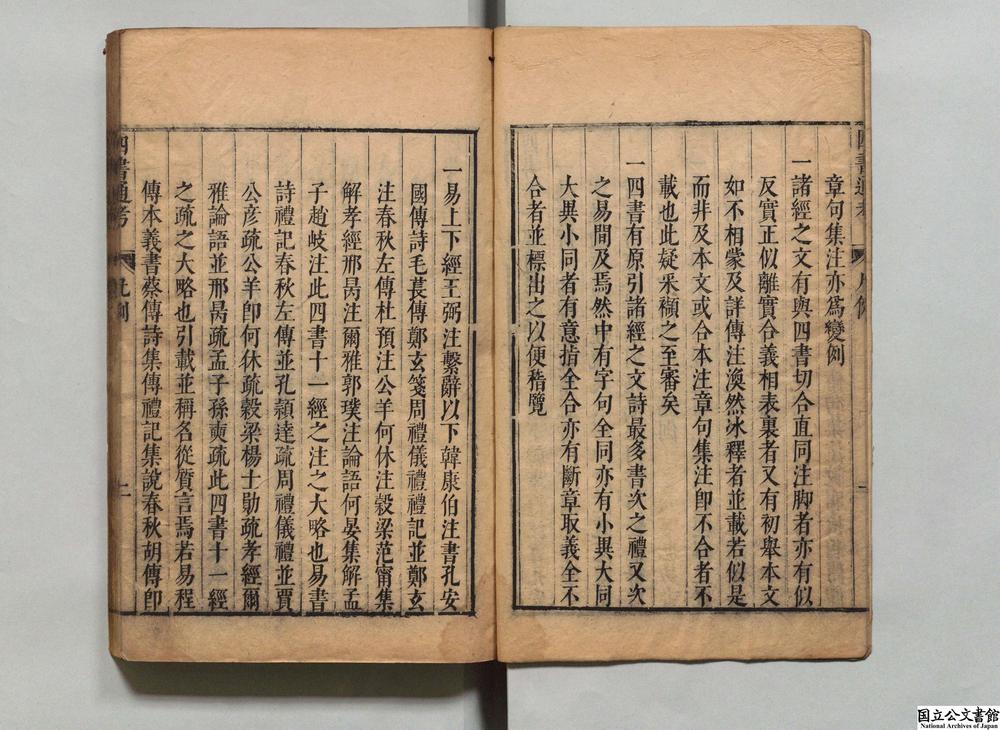 章句集注亦為變例
一諸經之文有與四書切合直同注脚者亦有似
反實正似離實合義相表裏者又有初舉本文
如不相蒙及詳傳注渙然冰釋者並載若似是
而非及本文或合本注章句集注卽不合者不
載也此疑采䫫之至審矣
一四書有原引諸經之文詩最多書次之禮又次
之易間及焉然中有字句全同亦有小異大同
大異小同者有意指全合亦有斷章取義全不
合者並標出之以便稽覽
一易上下經王弼注繫辭以下韓康伯注書孔安
國傳詩毛萇傳鄭玄箋周禮儀禮禮記並鄭玄
注春秋左傳杜預注公羊何休注穀梁范甯集
解孝經邢昺注爾雅郭璞注論語何晏集解孟
子趙岐注此四書十一經之注之大略也易書
詩禮記春秋左傳並孔穎達疏周禮儀禮並賈
公彥疏公羊卽何休疏穀梁楊士勛疏孝經爾
雅論語並邢昺疏孟子孫奭疏此四書十一經
之疏之大略也引載並稱名從質言焉若易程
傳本義書蔡傳詩集傳禮記集說春秋胡傳卽
四書通考
凡例
二
国立公文書館
National Archives of Japan